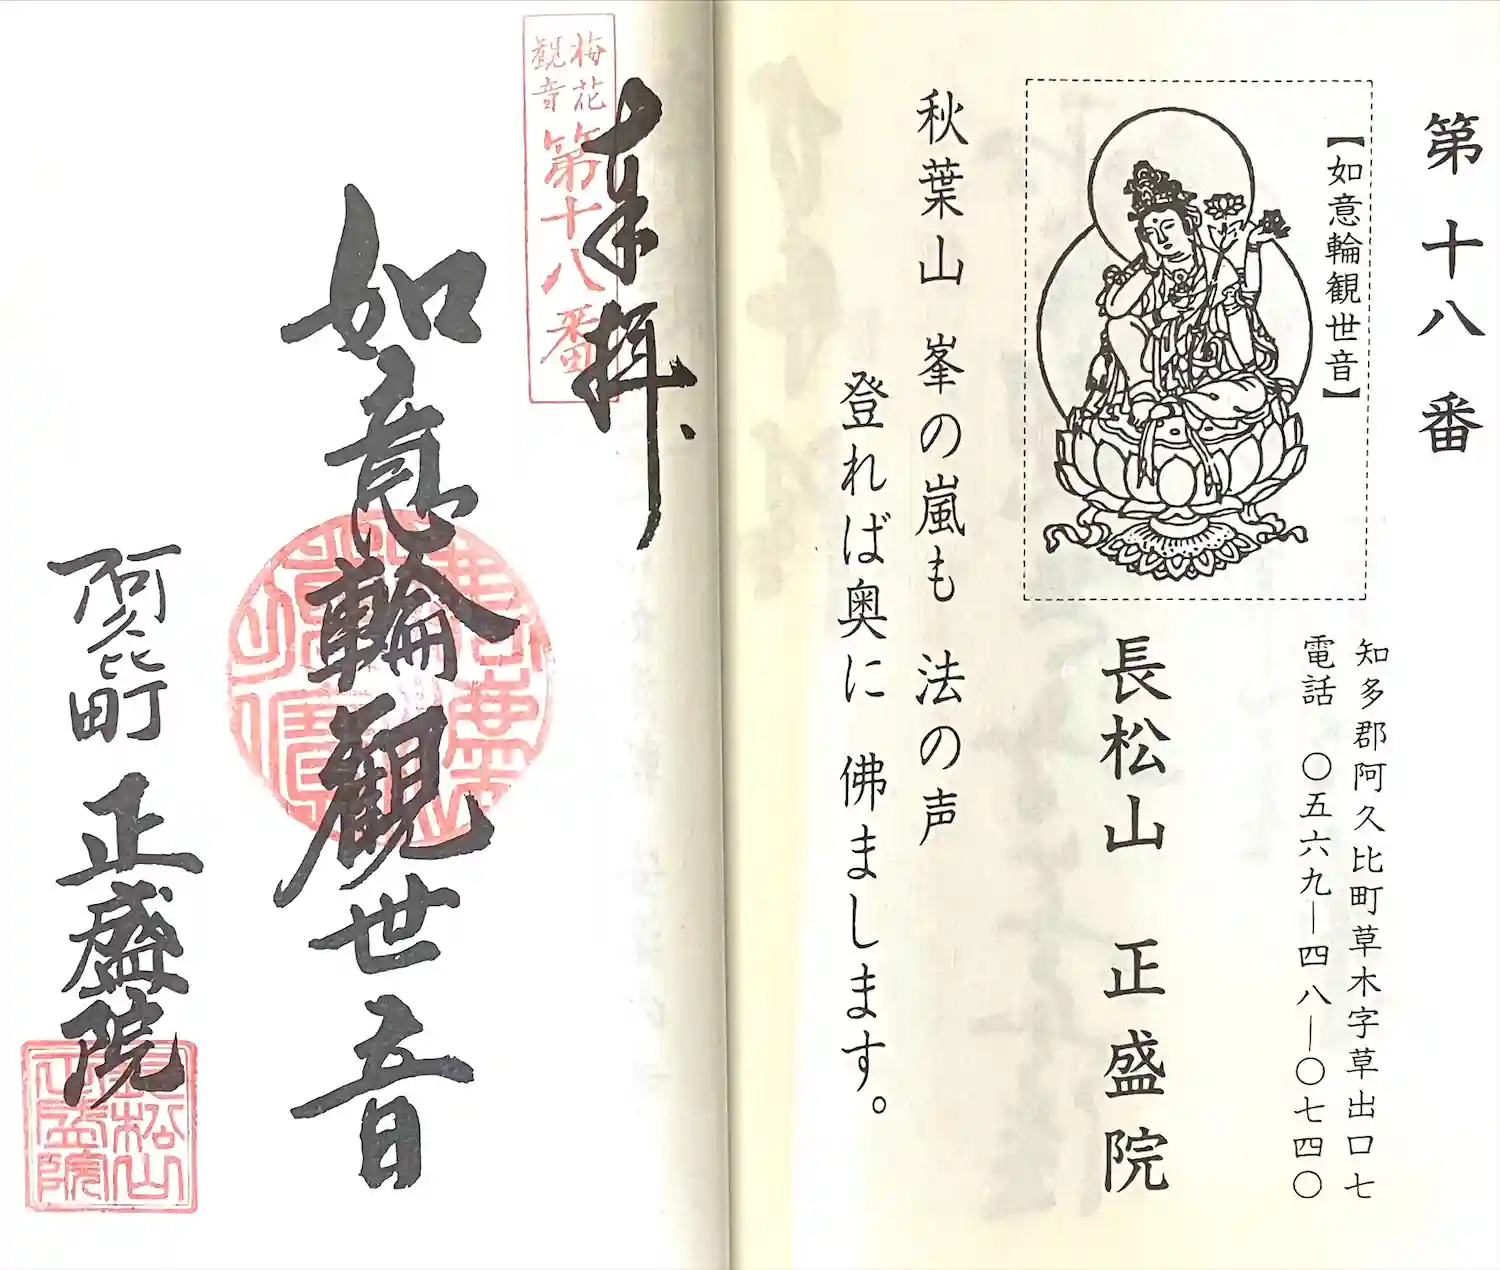 第十八番
【如意輪観世音】
知多郡阿久比町草木字草出口七
電話 〇五六九―四八―〇七四〇
長松山 正盛院
秋葉山 峯の嵐も 法の声
登れば奥に 佛まします。
奉拝
梅花
観音
第十八番
如意輪觀世音
阿久比町 正盛院
長松山
正盛院